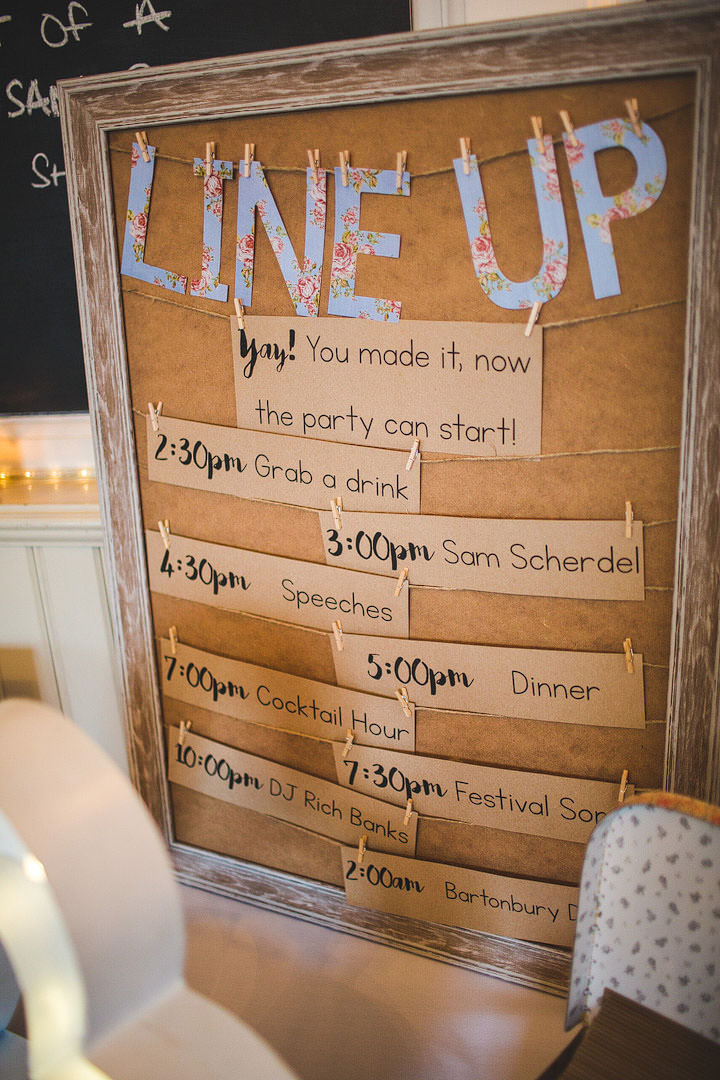 OF A
LINE UP
Yay! You made it, now
the party can start!
2:30pm Grab a drink
3:00pm Sam Scherdel
4:30pm Speeches
5:00pm Dinner
7:00pm Cocktail Hour
7:30pm Festival
10:00pm DJ Rich Banks
2:00am Bartonbury